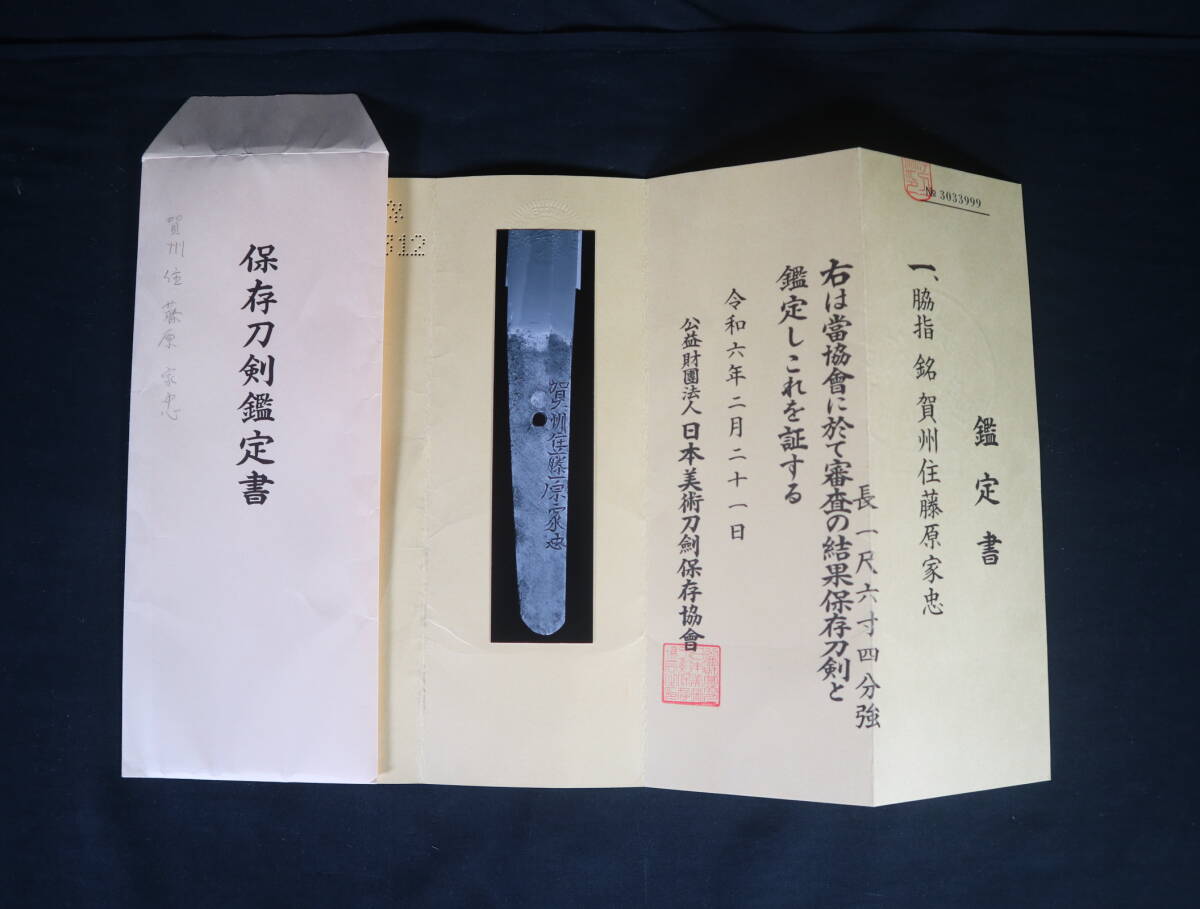 № 3033999
鑑定書
一、脇指 銘 賀州住藤原家忠
長一尺六寸四分強
右は當協會に於て審査の結果保存刀剣と
鑑定しこれを証する
令和六年二月二十一日
公益財團法人日本美術刀劍保存協會
賀州住藤原家忠
312
保存刀剣鑑定書
賀州住 藤原 家忠